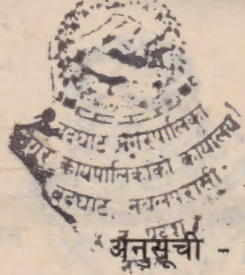 बर्दघाट नगरपालिका
नगर कार्यपालिकाको कार्यालय
बर्दघाट, नवलपरासी
अनुसूची -